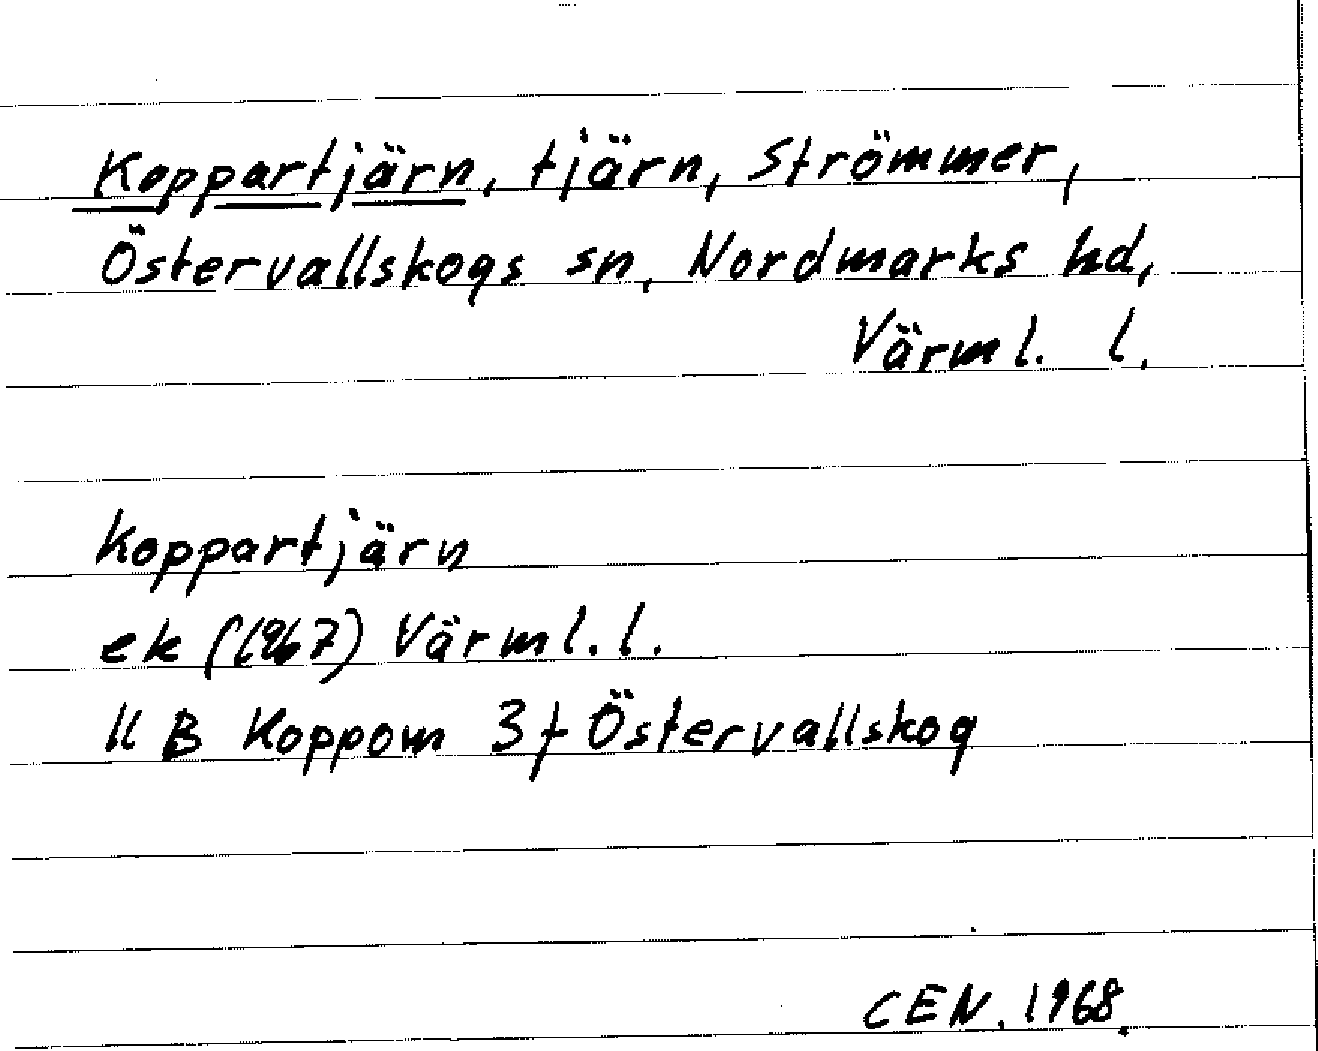 Koppartjärn, tjärn, Strömmer,
Östervallskogs sn, Nordmarks hd,
Värml. l.
Koppartjärn
ek (1967) Värml. l.
11 B Koppom 3 f Östervallskog
CEN. 1968.